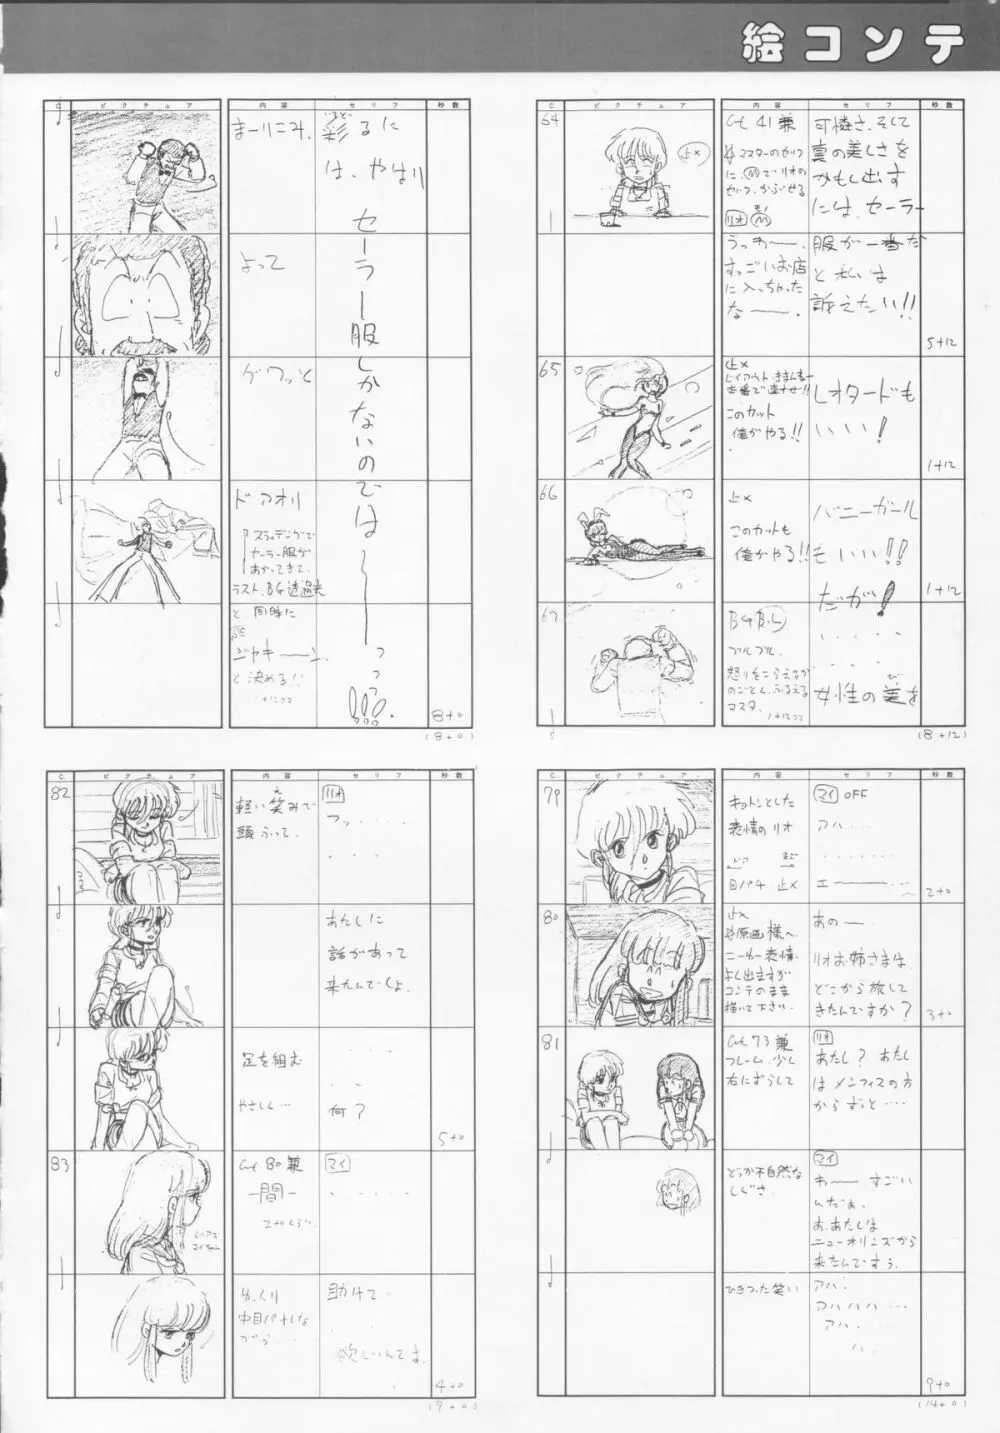 絵コンテ
C. ピクチュア 内容 セリフ 秒数
64
Cut 41 兼
マスターのセリフ
に、Ⓜでリオの
セリフ、かぶせる
リオ Ⓜ
可憐さ、そして
真の美しさを
かもし出す
には、セーラー
うっわー、
すっごいお店
に入っちゃった
なー。
服が一番だ
と私は
訴えたい!!
5+12
65
止メ
このカット
俺がやる!!
レオタードも
いい!
1+12
66
止メ
このカットも
俺がやる!!
バニーガール
もいい!!
だが!
1+12
67
BG BL
ブルブル
怒りをこらえるか
のごとく、ふるえる
マスタ。
・・・・・
・・・・
女性の美を
(8+12)
C. ピクチュア 内容 セリフ 秒数
まーりこみ、
彩るに
は、やはり
セーラー服しかないのでは〜っっ
よって
グワッと
ドアオリ
スライディングで
セーラー服が
あがってきて、
ラスト、BG透過光
と同時に
ジャキーン。
と決める!!
8+0
(8+0)
C. ピクチュア 内容 セリフ 秒数
79
キョトンとした
表情のリオ
目パチ 止メ
マイ OFF
アハ・・・
・・・・・・
エー・・・
2+0
80
止メ
原画様へ
ニーカー表情、
よく出ますが
コンテのまま
描いて下さい。
あのー
リオお姉さまは、
どこから旅して
きたんですか?
3+0
81
Cut 73 兼
フレーム、少し
右にずらして
リオ
あたし? あたし
はメンフィスの方
からずっと・・・・
どっか不自然な
しぐさ。
マイ
わー すごい
んだぁ。
お、あたしは
ニューオリンズから
来たんですぅ。
ひきつった笑い
アハ。
アハハハ・・・
アハ・・・・
ハ、
9+0
(14+0)
C. ピクチュア 内容 セリフ 秒数
82
軽い笑みで
頭ふって。
リオ
フッ・・・・・
・・・
あたしに
話があって
来たんでしょ。
足を組む
やさしく…
・・・・
何?
5+0
83
Cut 80 兼
—間—
マイ
・・・・・
ゆっくり
中目パチしな
がら・・・・
助けて・
・・・・・
欲しいんです。
4+0
(9+0)